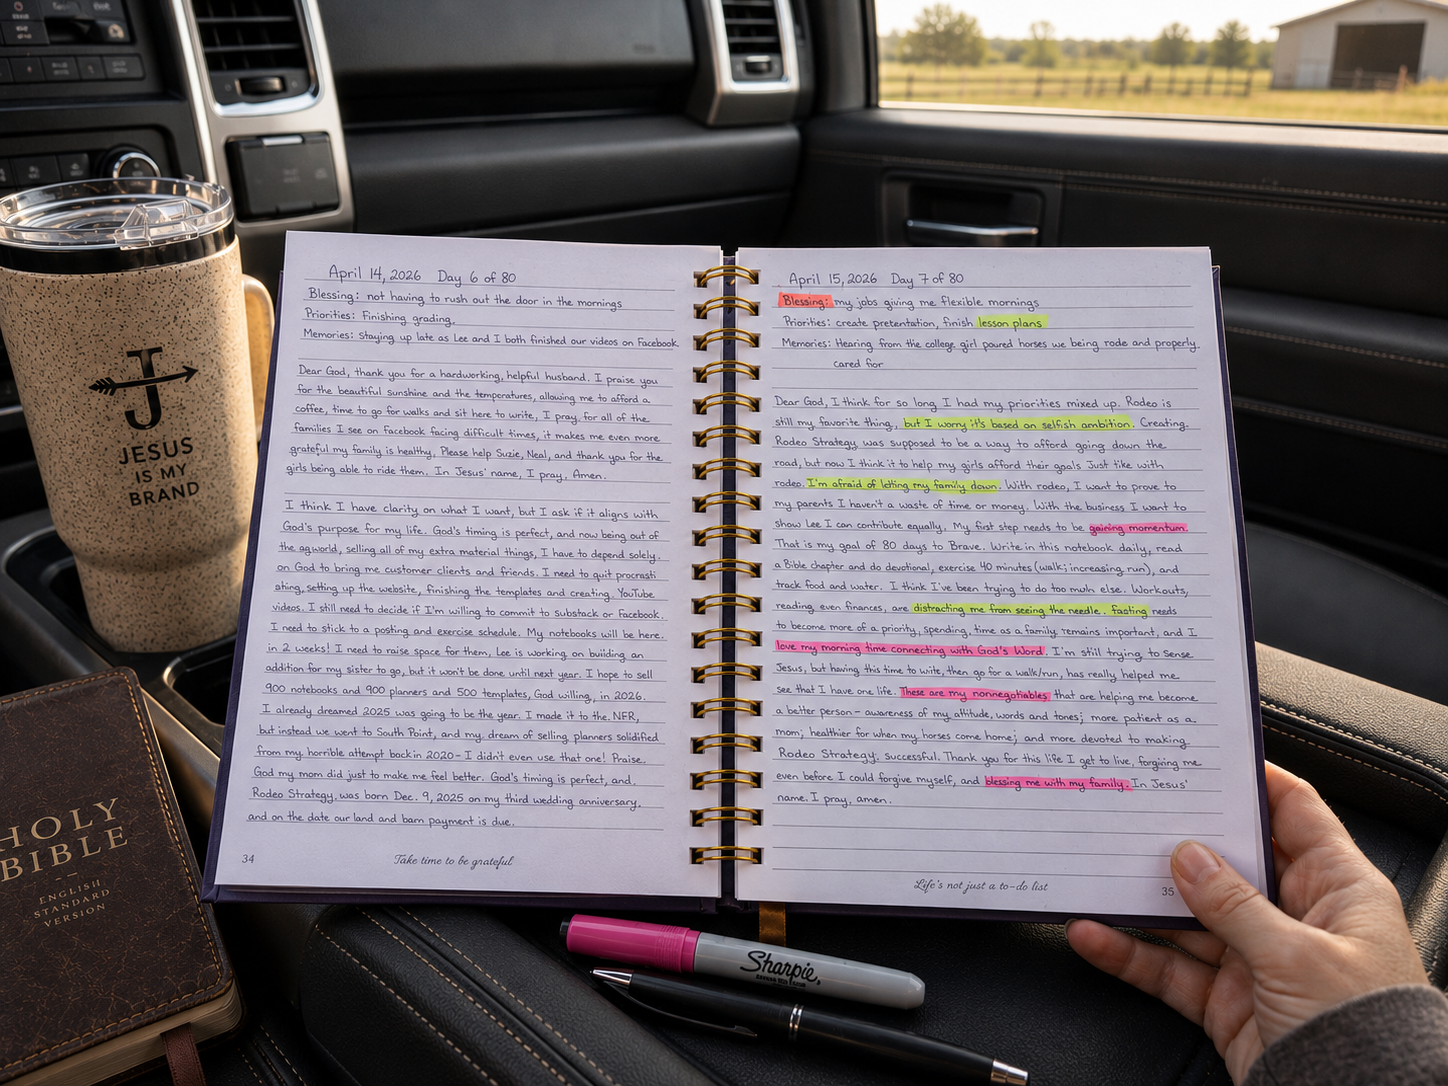 April 14, 2026 Day 6 of 80
Blessing: not having to rush out the door in the mornings
Priorities: Finishing grading.
Memories: Staying up late as Lee and I both finished our videos on Facebook.
Dear God, thank you for a hardworking, helpful husband. I praise you
for the beautiful sunshine and the temperatures, allowing me to afford a
coffee, time to go for walks and sit here to write, I pray, for all of the
families I see on Facebook facing difficult times, it makes me even more
grateful my family is healthy, Please help Suzie, Neal, and thank you for the
girls being able to ride them. In Jesus' name, I pray. Amen.
I think I have clarity on what I want, but I ask if it aligns with
God's purpose for my life. God's timing is perfect, and now being out of
the ag world, selling all of my extra material things, I have to depend solely.
on God to bring me customer clients and friends. I need to quit procrasti
shing, setting up the website, finishing the templates and creating. YouTube
videos. I still need to decide if I'm willing to commit to substack or Facebook.
I need to stick to a posting and exercise schedule. My notebooks will be here.
in 2 weeks! I need to raise space for them, Lee is working on building an
addition for my sister to go, but it won't be done until next year. I hope to sell
900 notebooks and 900 planners and 500 templates, God willing, in 2026.
I already dreamed 2025 was going to be the year. I made it to the NFR,
but instead we went to South Point, and my dream of selling planners solidified
from my horrible attempt back in 2020 - I didn't even use that one! Praise.
God my mom did just to make me feel better. God's timing is perfect, and.
Rodeo Strategy, was born Dec. 9, 2025 on my third wedding anniversary,
and on the date our land and barn payment is due.
34
Take time to be grateful
April 15, 2026 Day 7 of 80
Blessing: my jobs giving me flexible mornings
Priorities: create pretentation, finish lesson plans
Memories: Hearing from the college girl poured horses we being rode and properly
cared for
Dear God, I think for so long I had my priorities mixed up. Rodeo is
still my favorite thing, but I worry it's based on selfish ambition. Creating.
Rodeo Strategy was supposed to be a way to afford going down the
road, but now I think it to help my girls afford their goals Just like with
rodeo. I'm afraid of letting my family down. With rodeo, I want to prove to
my parents I haven't a waste of time or money. With the business I want to
show Lee I can contribute equally. My first step needs to be gaining momentum.
That is my goal of 80 days to Brave. Write in this notebook daily, read
a Bible chapter and do devotional, exercise 40 minutes (walk; increasing, run), and
track food and water. I think I've been trying to do too muln else. Workouts,
reading, even finances, are distracting me from seeing the needle. Fasting needs
to become more of a priority, spending, time as a family remains important, and I
love my morning time connecting with God's Word. I'm still trying to sense
Jesus, but having this time to write, then go for a walk/run, has really helped me
see that I have one life. These are my nonnegotiables that are helping me become
a better person - awareness of my attitude, words and tones; more patient as a
mom; healthier for when my horses come home; and more devoted to making.
Rodeo Strategy. successful. Thank you for this life I get to live, forgiving me
even before I could forgive myself, and blessing me with my family. In Jesus'
name. I pray, amen.
Life's not just a to-do list
35
J
JESUS
IS MY
BRAND
HOLY
BIBLE
ENGLISH
STANDARD
VERSION
Sharpie